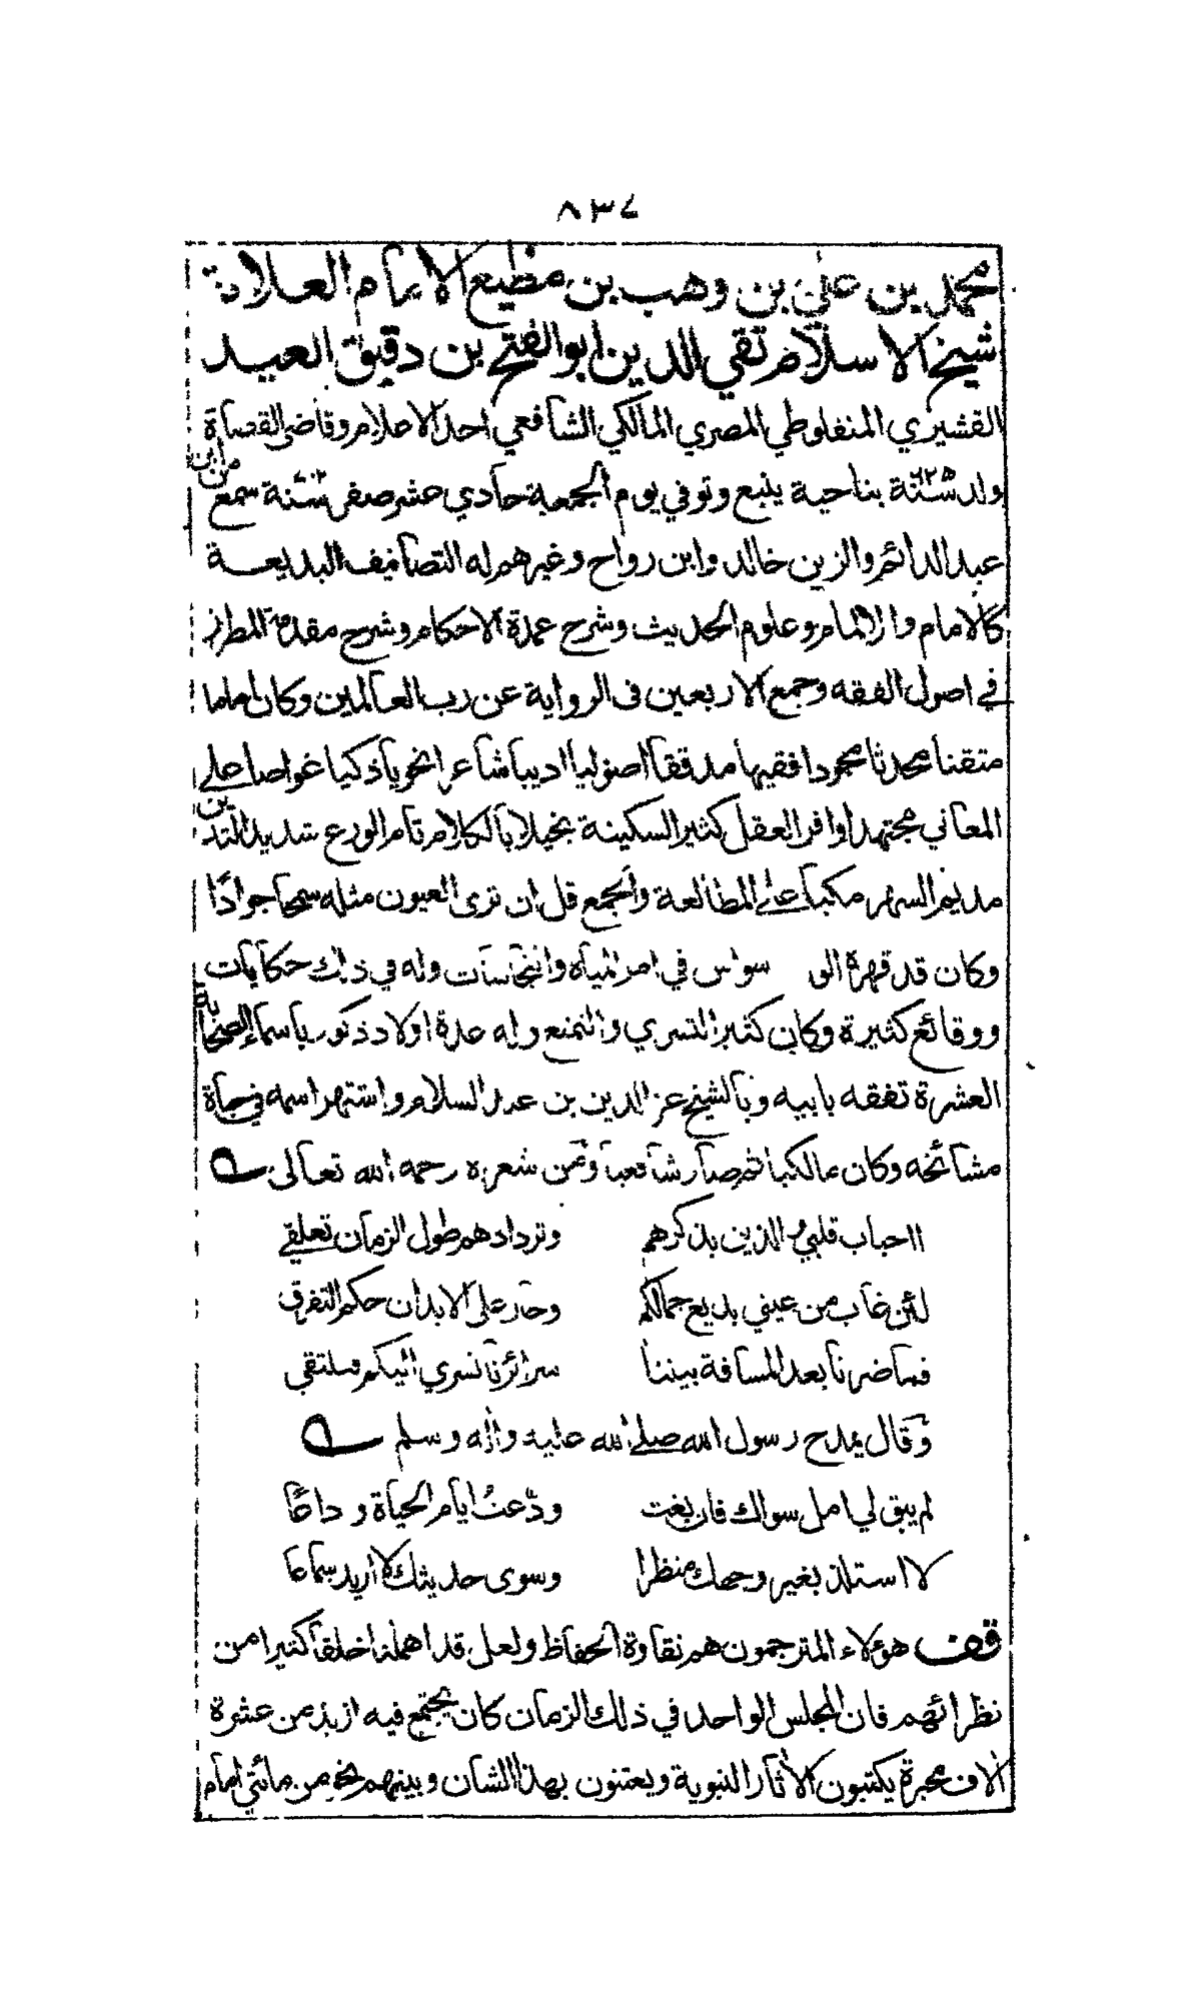 ٨٣٧
محمد بن علي بن وهب بن مطيع الامام العلامة
شيخ الاسلام تقي الدين ابو الفتح بن دقيق العيد
القشيري المنفلوطي المصري المالكي الشافعي احد الاعلام وقاضي القضاة
ولد سنة ٦٢٥ بناحية ينبع وتوفي يوم الجمعة حادي عشر صفر سنة ٧٠٢ سمع من ابن
عبد الدائم والزين خالد وابن رواح وغيرهم له التصانيف البديعة
كالامام والالمام وعلوم الحديث وشرح عمدة الاحكام وشرح مقدمة المطرز
في اصول الفقه وجمع الاربعين فى الرواية عن رب العالمين وكان اماما
متقنا محدثا مجودا فقيها مدققا اصوليا اديبا شاعرا نحويا ذكيا غواصا على
المعاني مجتهدا وافر العقل كثير السكينة بخيلا بالكلام تام الورع شديد التدين
مديم السهر مكبا على المطالعة والجمع قل ان ترى العيون مثله سمحا جوادًا
وكان قد قهرة الو سواس في امر المياه والنجاسات وله في ذلك حكايات
ووقائع كثيرة وكان كثير التسري والتمتع وله عدة اولاد ذكور باسماء الصحابة
العشرة تفقه بابيه وبالشيخ عز الدين بن عبد السلام واشتهر اسمه في حياة
مشائخه وكان مالكيا ثم صار شافعيا ومن شعره رحمه الله تعالى
ااحباب قلبي والذين بذكرهم وترداد هم طول الزمان تعلقي
لئن غاب من عيني بديع جمالكم وجار على الابدان حكم التفرق
فما ضرنا بعد المسافة بيننا سرائرنا تسري اليكم فنلتقي
وقال يمدح رسول الله صلى الله عليه واله وسلم
لم يبق لي امل سواك فان يفت ودّعتُ ايام الحياة وداعًا
لا استلذ بغير وجهك منظرا وسوى حديثك لا اريد سماعا
قف هؤلاء المترجمون هم نقاوة الحفاظ ولعل قد اهملنا خلقا كثيرا من
نظرائهم فان المجلس الواحد في ذلك الزمان كان يجتمع فيه ازيد من عشرة
الاف محبرة يكتبون الاثار النبوية ويعتنون بهذا الشان وبينهم نحو من مائتي امام